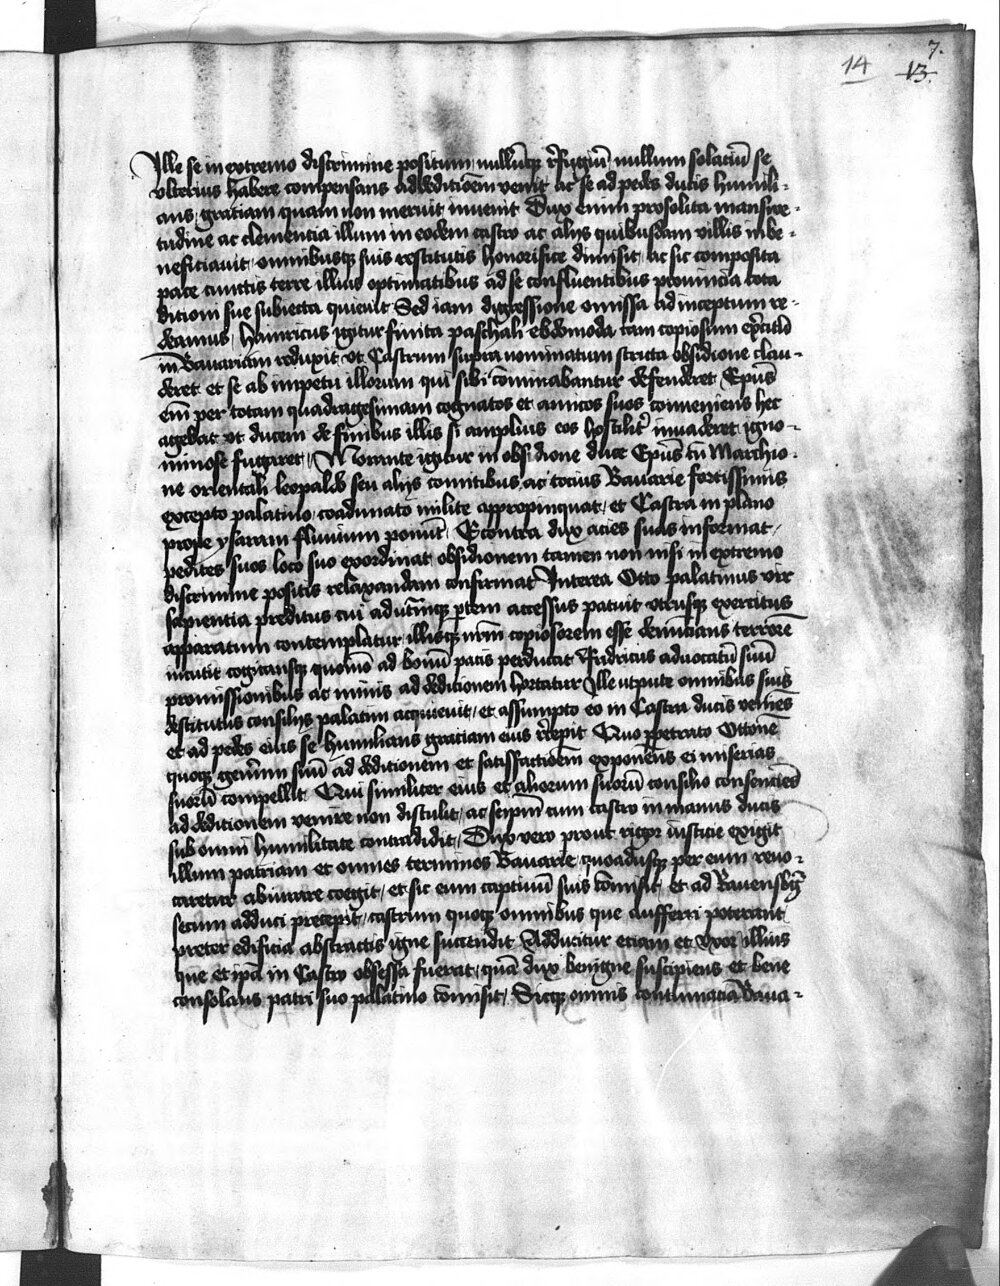 14
7.
13.
Ille se in extremo discrimine positum nullumq̄ r̄fugiū nullum solatiū se
vlterius habere compensans ad deditiōem venit ac se ad pedes ducis humili-
ans gratiam quam non meruit inuenit Dux enim pro solita mansue-
tudine ac clementia illum in eodem castro ac alijs quibusdam villis inbe-
nefitiauit omnibusq̄ suis restitutis honorifice dimisit ac sic composita
pace cunctis terre illius optimatibus ad se confluentibus prouincia tota
ditioni sue subiecta quieuit Sed iam digressione omissa ad inceptum re-
deamus Hainricus igitur finita paschali ebdomoda tam copiosum exercitū
in Bauariam reduxit vt Castrum supra nominatum stricta obsidione clau-
deret et se ab impetu illorum qui sibi cominabantur defenderet Epūs
eni per totam quadragesimam cognatos et amicos suos conueniens hec
agebat vt ducem de finibus illis si amplius eos hostilit̄ inuaderet igno-
miniose fugaret Morante igitur in obsidione duce Epūs cū Marchio-
ne orientali leopaldo seu alijs comitibus ac totius Bauarie fortissimis
excepto palatino coadunato milite appropinquat et Castra in plano
prope ysaram fluuium ponūt Econtra dux acies suas informat
pedites suos loco suo exordinat obsidionem tamen non nisi in extremo
discrimine positis relaxandam confirmat Interea Otto palatinus vir
sapientia preditus cui ad utrūq̄ ptem accessus patuit vtriusq̄ exercitus
apparatum contemplatur illisq̄ nrm̄ copiosorem esse denūtians terrorē
incutit cogitansq̄ quomō ad bonū pacis perducat Fridricus aduocatū suū
promissionibus ac minis ad deditionem hortatur Ille utpute omnibus suis
destitutus consilijs palatini acquieuit et assumpto eo in Castra ducis veniēs
et ad pedes eius se humilians gratiam eius r̄cepit Quo ppetrato Ottonē
quoq̄ germ̄m suū ad deditionem et satisfactiōem exponens ei miserias
suorū compellit Qui similiter eius et aliorum suorū consilio consenciēs
ad deditionem venire non distulit ac seipm̄ cum castro in manus ducis
sub omni humilitate contradidit Dux vero prout rigor iusticie exigit
illum patriam et omnes terminos Bauarie quoadusq̄ per eum reuo-
caretur abiurare coegit et sic eum captiuū suis comisit et ad Rauenspḡ
secum adduci precepit castrum quoq̄ omnibus que aufferri poterant
preter edificia abstractis igne succendit Adducitur etiam et vxor illius
que et ipa in Castro obsessa fuerat quā dux benigne suscipiens et bene
consolans patri suo palatino comisit Sicq̄ omnis contumatia Baua-